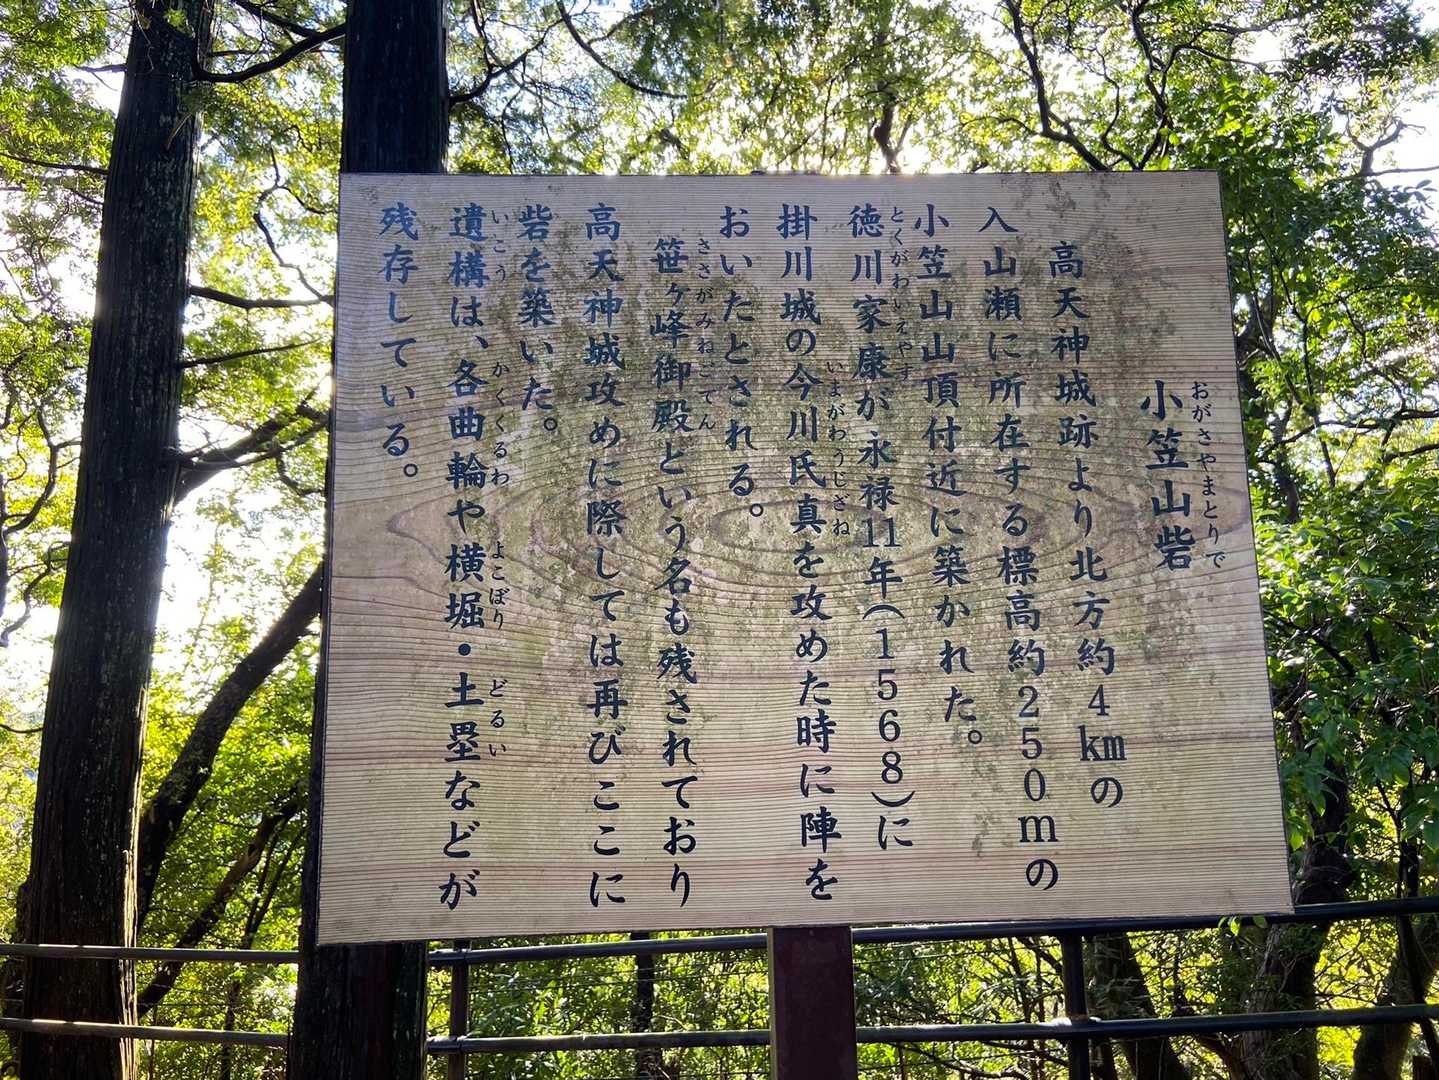 小笠山砦
おがさやまとりで
高天神城跡より北方約4kmの
入山瀬に所在する標高約250mの
小笠山山頂付近に築かれた。
徳川家康が永禄11年(1568)に
とくがわいえやす
掛川城の今川氏真を攻めた時に陣を
いまがわうじざね
おいたとされる。
笹ヶ峰御殿という名も残されており
ささがみねごてん
高天神城攻めに際しては再びここに
砦を築いた。
遺構は、各曲輪や横堀・土塁などが
いこう かくくるわ よこぼり どるい
残存している。